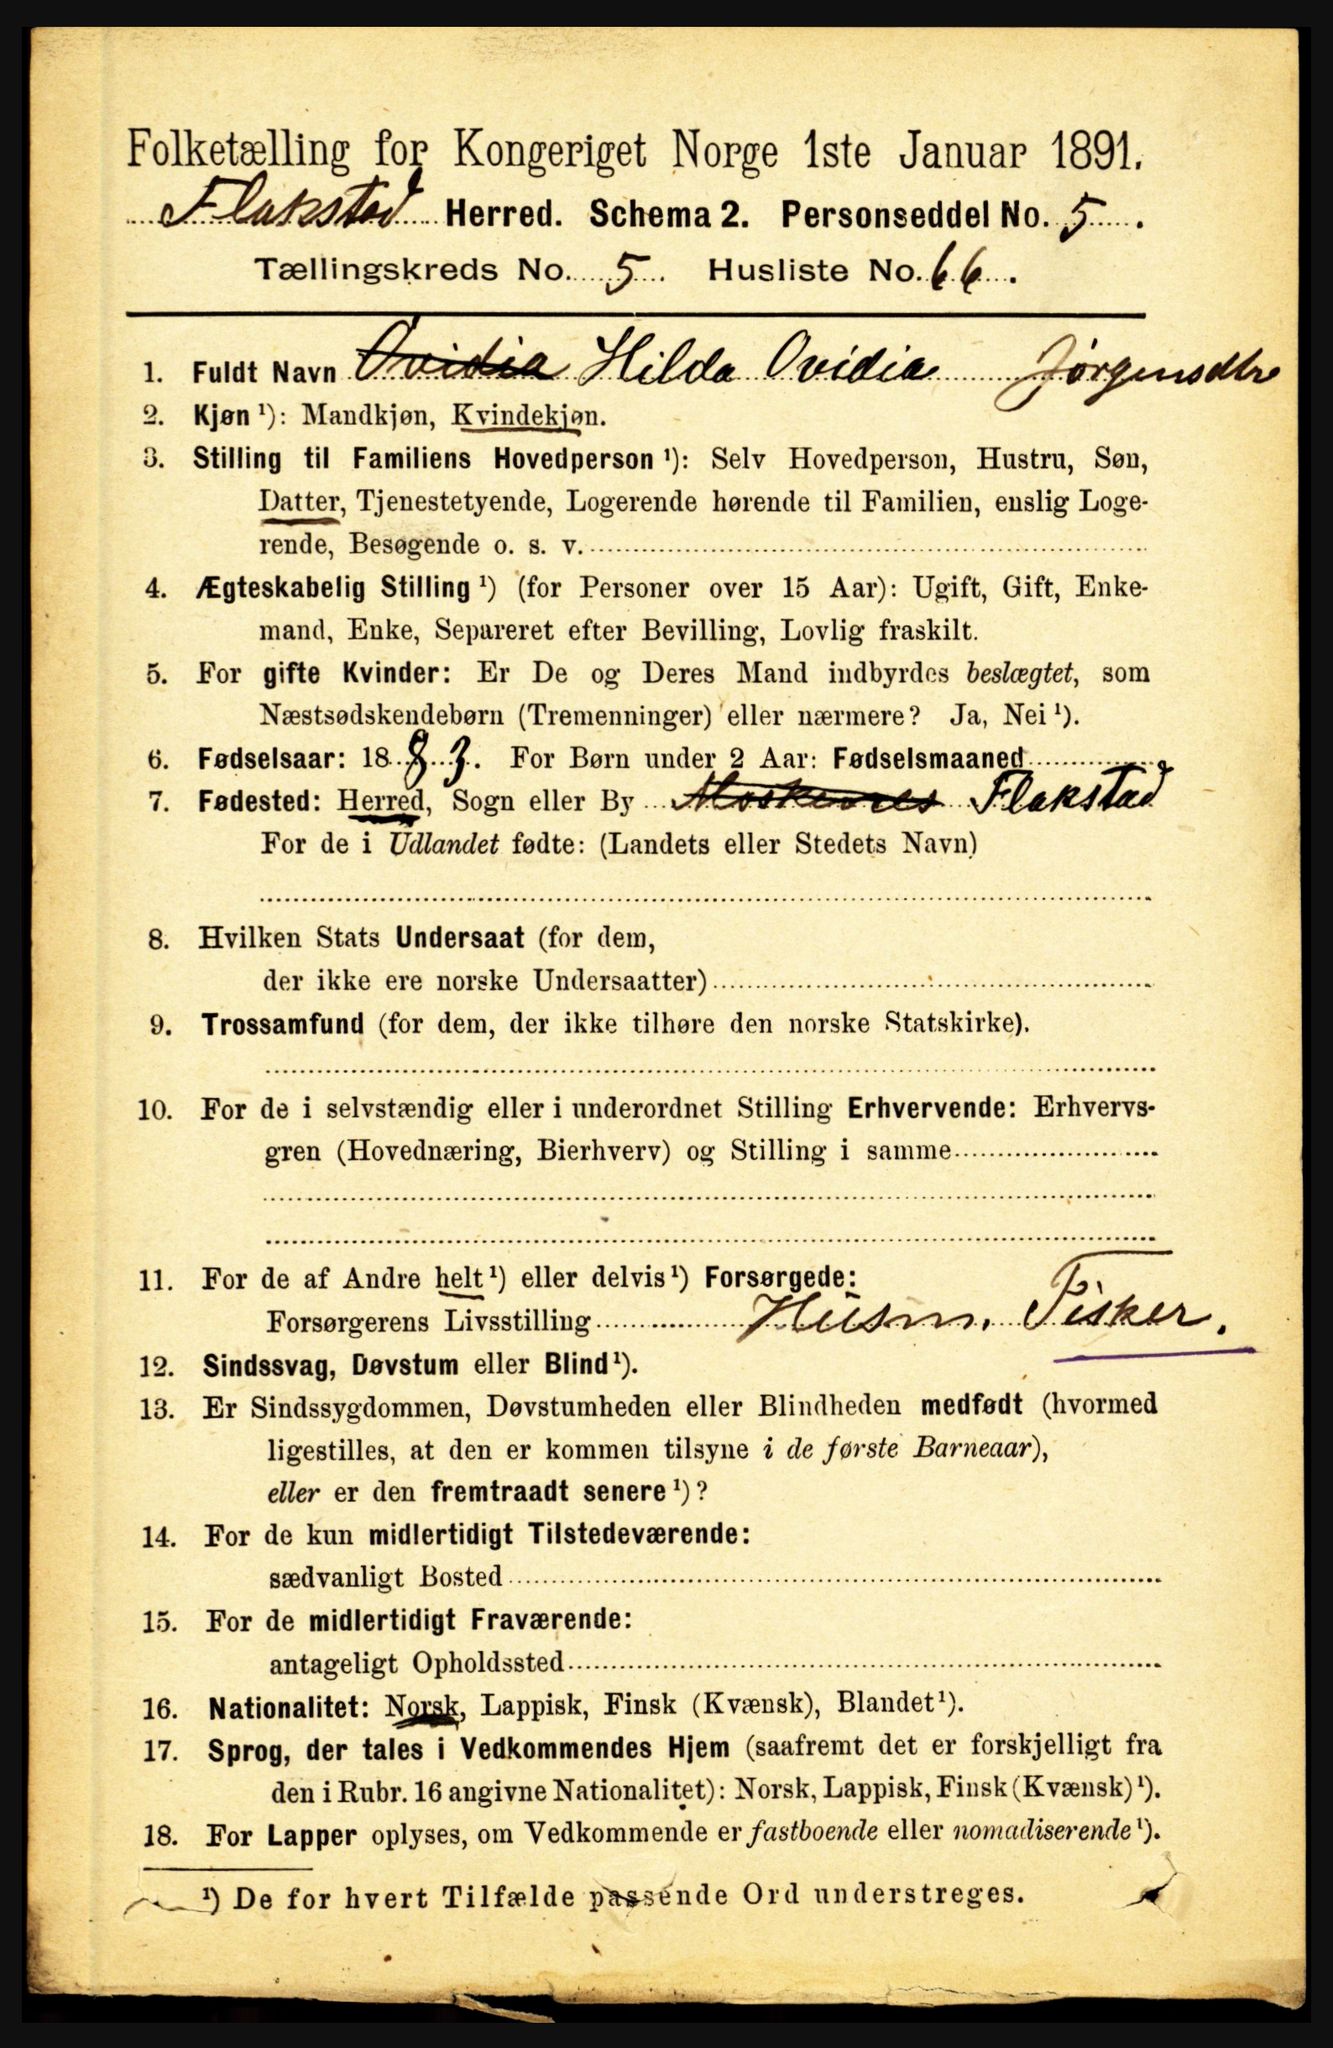 Folketælling for Kongeriget Norge 1ste Januar 1891.
Flakstad Herred. Schema 2. Personseddel No. 5.
Tællingskreds No. 5. Husliste No. 66.
1. Fuldt Navn Ovidia Hilda Ovidia Jørgensdtr
2. Kjøn ¹): Mandkjøn, Kvindekjøn.
3. Stilling til Familiens Hovedperson ¹): Selv Hovedperson, Hustru, Søn,
Datter, Tjenestetyende, Logerende hørende til Familien, enslig Loge-
rende, Besøgende o. s. v.
4. Ægteskabelig Stilling ¹) (for Personer over 15 Aar): Ugift, Gift, Enke-
mand, Enke, Separeret efter Bevilling, Lovlig fraskilt.
5. For gifte Kvinder: Er De og Deres Mand indbyrdes beslægtet, som
Næstsødskendebørn (Tremenninger) eller nærmere? Ja, Nei ¹).
6. Fødselsaar: 1883. For Børn under 2 Aar: Fødselsmaaned
7. Fødested: Herred, Sogn eller By Moskenes Flakstad
For de i Udlandet fødte: (Landets eller Stedets Navn)
8. Hvilken Stats Undersaat (for dem,
der ikke ere norske Undersaatter)
9. Trossamfund (for dem, der ikke tilhøre den norske Statskirke).
10. For de i selvstændig eller i underordnet Stilling Erhvervende: Erhvervs-
gren (Hovednæring, Bierhverv) og Stilling i samme
11. For de af Andre helt ¹) eller delvis ¹) Forsørgede:
Forsørgerens Livsstilling Husm. Fisker.
12. Sindssvag, Døvstum eller Blind ¹).
13. Er Sindssygdommen, Døvstumheden eller Blindheden medfødt (hvormed
ligestilles, at den er kommen tilsyne i de første Barneaar),
eller er den fremtraadt senere ¹)?
14. For de kun midlertidigt Tilstedeværende:
sædvanligt Bosted
15. For de midlertidigt Fraværende:
antageligt Opholdssted
16. Nationalitet: Norsk, Lappisk, Finsk (Kvænsk), Blandet ¹).
17. Sprog, der tales i Vedkommendes Hjem (saafremt det er forskjelligt fra
den i Rubr. 16 angivne Nationalitet): Norsk, Lappisk, Finsk (Kvænsk) ¹).
18. For Lapper oplyses, om Vedkommende er fastboende eller nomadiserende ¹).
¹) De for hvert Tilfælde passende Ord understreges.